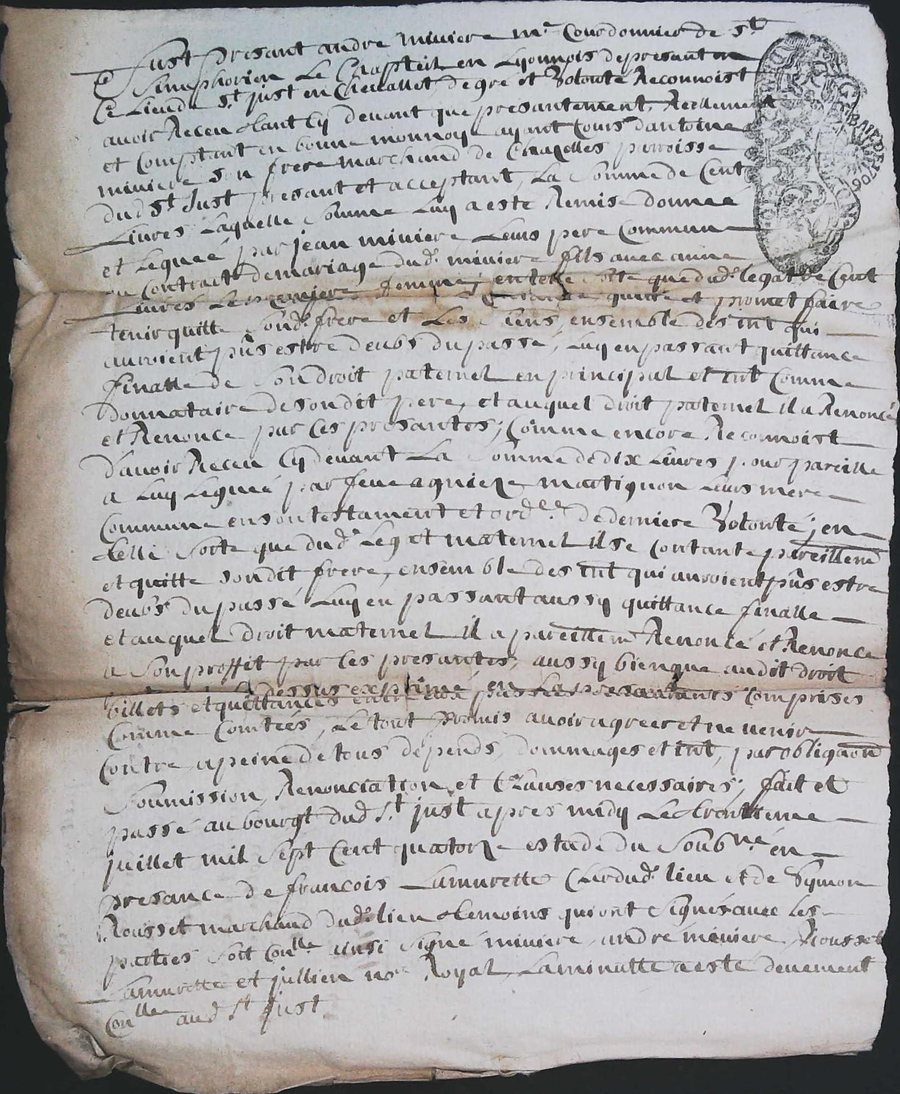 Fust presant andre miniere me Courdonnier de St
Simphorien Le Chasteil en Lyonnois depresant en
Ce Lieu de St just en Chevallet de gre et Volonte Reconnoist
avoir Receu tant Cy devant que presantement, Reellement
et Comptant en bonne monnoy ayant Cours d'antoine
miniere son frere marchand de Chazelles parroisse
dud St Just presant et acceptant, La Somme de Cent
Livres Laquelle Somme Luy a este Remise donnee
et Leguée par jean miniere Leurs pere Commun
Contract de mariage dud. miniere fils avec
Livres La premiere femme; en telle Sorte que dud. legat de Cent
quitte et promet faire
tenir quitte Sond. frere et Les Siens, ensemble des int qui
auroient pûs estre deubs du passé, Luy en passant quittance
finalle de Son droit paternel en principal et int Comme
donnataire de son dit pere, et auquel droit paternel il a Renoncé
et Renonce par Ces presantes; Comme encore Reconnoist
d'avoir Receu Cy devant La Somme de dix Livres pour pareille
a Luy Leguée par feue agnieze matignon Leurs mere
Commune en son testament et ordce de derniere Volonte; en
telle Sorte que dud. Leg et maternel il se Contante pareillemt
et quitte son dit frere, ensemble des int qui auroient pûs estre
deubs du passé Luy en passant aussy quittance finalle
et auquel droit maternel il a pareillemt Renoncé et Renonce
a Son proffit par Ces presantes; aussy bien que audit droit
La dessus exprimé
billets et quittances presantes Comprises
Comme Comtées, Le tout promis avoir agreer et ne venir
Contre, a peine de tous depends, dommages et int, par obligaon
Soumission, Renonciation et Clauses necessaires; fait et
passé au bourgt dud St just apres midy Le trentieme
juillet mil Sept Cent quatorze estude du Soubne en
presance de francois Lamurette Clerc dud. lieu et de Symon
Rousset marchand dud. lieu temoins qui ont Signés avec Les
parties Soit Conlle ainsi Signé miniere, andre miniere, Rousset
Lamurette et jullien nore Royal, La minutte a este deuement
Conlle aud St Just